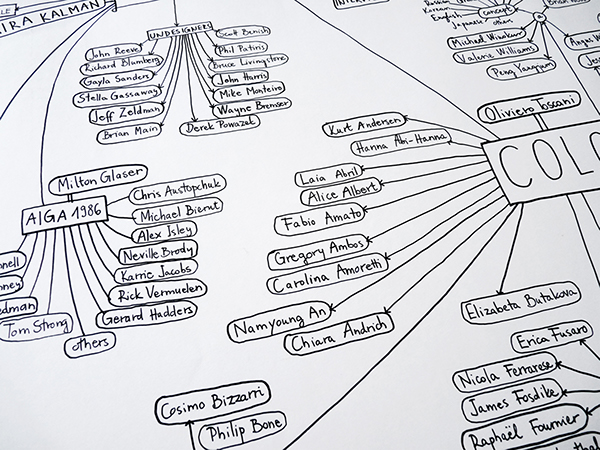 IRA KALMAN
UNDESIGNERS
John Reeve
Richard Blumberg
Gayla Sanders
Stella Gassaway
Jeff Zeldman
Brian Main
Scott Benish
Phil Patiris
Bruce Livingstone
John Harris
Mike Monteiro
Wayne Bremser
Derek Powazek
concept
Japanese
others
Michael
Valerie Williams
Peng Yangjun
Oliviero Toscani
COLO
Kurt Andersen
Hanna Abi-Hanna
Laia Abril
Alice Albert
Fabio Amato
Gregory Ambos
Carolina Amoretti
Namyoung An
Chiara Andrich
Elizabeta Butakova
Erica Fusaro
Nicola Ferrarese
James Fosdike
Raphaël Fournier
Milton Glaser
AIGA 1986
Chris Austopchuk
Michael Bierut
Alex Isley
Neville Brody
Karrie Jacobs
Rick Vermuelen
Gerard Hadders
others
Tom Strong
nell
ney
edman
Cosimo Bizzarri
Philip Bone